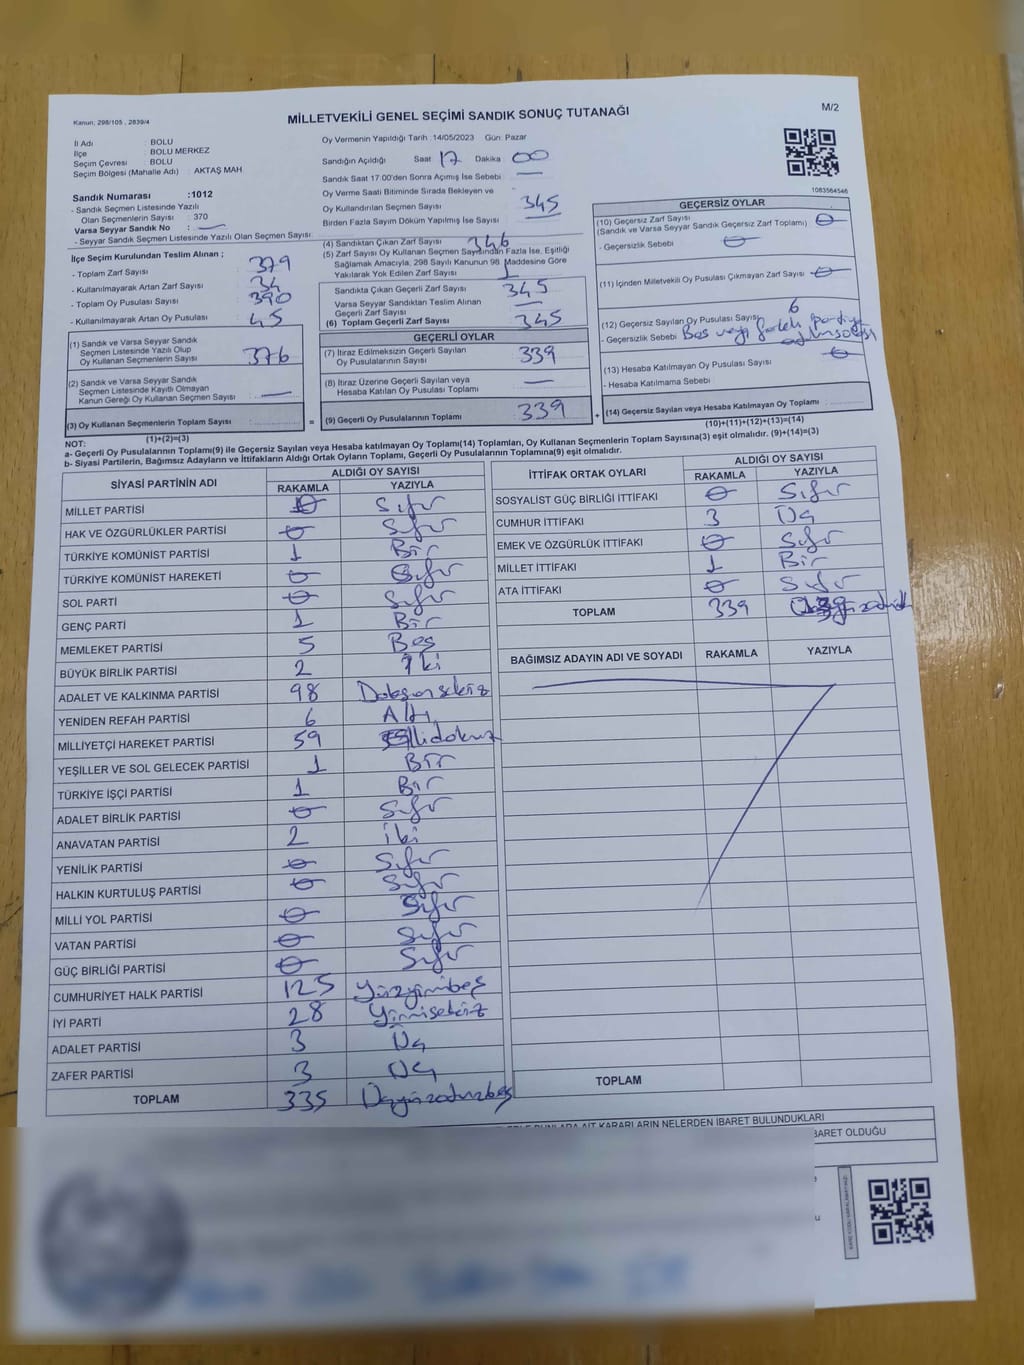 Kanun, 298/105 , 2839/4
MİLLETVEKİLİ GENEL SEÇİMİ SANDIK SONUÇ TUTANAĞI
M/2
İl Adı : BOLU
İlçe : BOLU MERKEZ
Seçim Çevresi : BOLU
Seçim Bölgesi (Mahalle Adı) : AKTAŞ MAH
Sandık Numarası :1012
- Sandık Seçmen Listesinde Yazılı
Olan Seçmenlerin Sayısı : 370
Varsa Seyyar Sandık No : —
- Seyyar Sandık Seçmen Listesinde Yazılı Olan Seçmen Sayısı:
Oy Vermenin Yapıldığı Tarih :14/05/2023 Gün: Pazar
Sandığın Açıldığı Saat 17 Dakika 00
Sandık Saat 17.00'den Sonra Açımış İse Sebebi : —
Oy Verme Saati Bitiminde Sırada Bekleyen ve
Oy Kullandırılan Seçmen Sayısı : 345
Birden Fazla Sayım Döküm Yapılmış İse Sayısı : —
1083564546
İlçe Seçim Kurulundan Teslim Alınan ;
- Toplam Zarf Sayısı : 379
- Kullanılmayarak Artan Zarf Sayısı : 34
- Toplam Oy Pusulası Sayısı : 390
- Kullanılmayarak Artan Oy Pusulası : 45
(1) Sandık ve Varsa Seyyar Sandık
Seçmen Listesinde Yazılı Olup
Oy Kullanan Seçmenlerin Sayısı : 376
(2) Sandık ve Varsa Seyyar Sandık
Seçmen Listesinde Kayıtlı Olmayan
Kanun Gereği Oy Kullanan Seçmen Sayısı : —
(3) Oy Kullanan Seçmenlerin Toplam Sayısı :
(1)+(2)=(3)
(4) Sandıktan Çıkan Zarf Sayısı : 346
(5) Zarf Sayısı Oy Kullanan Seçmen Sayısından Fazla İse, Eşitliği
Sağlamak Amacıyla, 298 Sayılı Kanunun 98. Maddesine Göre
Yakılarak Yok Edilen Zarf Sayısı : 1
Sandıkta Çıkan Geçerli Zarf Sayısı : 345
Varsa Seyyar Sandıktan Teslim Alınan
Geçerli Zarf Sayısı : —
(6) Toplam Geçerli Zarf Sayısı : 345
GEÇERLİ OYLAR
(7) İtiraz Edilmeksizin Geçerli Sayılan
Oy Pusulalarının Sayısı : 339
(8) İtiraz Üzerine Geçerli Sayılan veya
Hesaba Katılan Oy Pusulası Toplamı : —
=
(9) Geçerli Oy Pusulalarının Toplamı : 339
+
GEÇERSİZ OYLAR
(10) Geçersiz Zarf Sayısı : 0
(Sandık ve Varsa Seyyar Sandık Geçersiz Zarf Toplamı)
- Geçersizlik Sebebi : 0
(11) İçinden Milletvekili Oy Pusulası Çıkmayan Zarf Sayısı : 0
(12) Geçersiz Sayılan Oy Pusulası Sayısı : 6
- Geçersizlik Sebebi : Boş veya
(13) Hesaba Katılmayan Oy Pusulası Sayısı : 0
- Hesaba Katılmama Sebebi :
(14) Geçersiz Sayılan veya Hesaba Katılmayan Oy Toplamı :
(10)+(11)+(12)+(13)=(14)
NOT:
a- Geçerli Oy Pusulalarının Toplamı(9) ile Geçersiz Sayılan veya Hesaba katılmayan Oy Toplamı(14) Toplamları, Oy Kullanan Seçmenlerin Toplam Sayısına(3) eşit olmalıdır. (9)+(14)=(3)
b- Siyasi Partilerin, Bağımsız Adayların ve İttifakların Aldığı Ortak Oyların Toplamı, Geçerli Oy Pusulalarının Toplamına(9) eşit olmalıdır.
SİYASİ PARTİNİN ADI ALDIĞI OY SAYISI
RAKAMLA YAZIYLA
MİLLET PARTİSİ 0 Sıfır
HAK VE ÖZGÜRLÜKLER PARTİSİ 0 Sıfır
TÜRKİYE KOMÜNİST PARTİSİ 1 Bir
TÜRKİYE KOMÜNİST HAREKETİ 0 Sıfır
SOL PARTİ 0 Sıfır
GENÇ PARTİ 1 Bir
MEMLEKET PARTİSİ 5 Beş
BÜYÜK BİRLİK PARTİSİ 2 İki
ADALET VE KALKINMA PARTİSİ 98 Doksansekiz
YENİDEN REFAH PARTİSİ 6 Altı
MİLLİYETÇİ HAREKET PARTİSİ 59 Ellidokuz
YEŞİLLER VE SOL GELECEK PARTİSİ 1 Bir
TÜRKİYE İŞÇİ PARTİSİ 1 Bir
ADALET BİRLİK PARTİSİ 0 Sıfır
ANAVATAN PARTİSİ 2 İki
YENİLİK PARTİSİ 0 Sıfır
HALKIN KURTULUŞ PARTİSİ 0 Sıfır
MİLLİ YOL PARTİSİ 0 Sıfır
VATAN PARTİSİ 0 Sıfır
GÜÇ BİRLİĞİ PARTİSİ 0 Sıfır
CUMHURİYET HALK PARTİSİ 125 Yüzyirmibeş
İYİ PARTİ 28 Yirmisekiz
ADALET PARTİSİ 3 Üç
ZAFER PARTİSİ 3 Üç
TOPLAM 335 Üçyüzotuzbeş
İTTİFAK ORTAK OYLARI ALDIĞI OY SAYISI
RAKAMLA YAZIYLA
SOSYALİST GÜÇ BİRLİĞİ İTTİFAKI 0 Sıfır
CUMHUR İTTİFAKI 3 Üç
EMEK VE ÖZGÜRLÜK İTTİFAKI 0 Sıfır
MİLLET İTTİFAKI 1 Bir
ATA İTTİFAKI 0 Sıfır
TOPLAM 339
BAĞIMSIZ ADAYIN ADI VE SOYADI RAKAMLA YAZIYLA
TOPLAM
KARARLARIN NELERDEN İBARET BULUNDUKLARI
BARET OLDUĞU